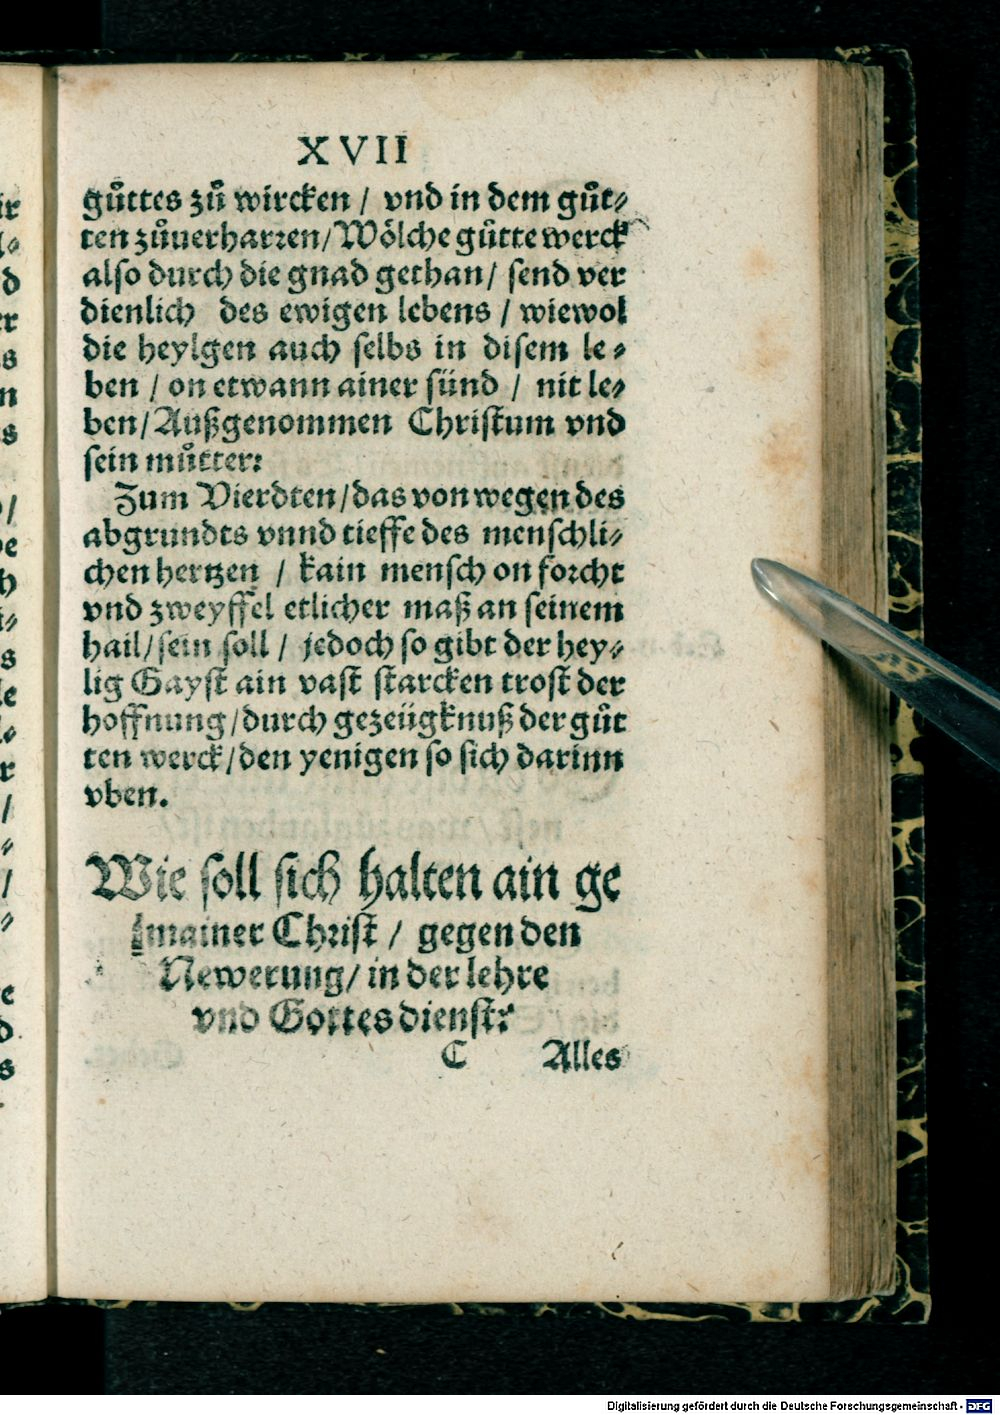 XVII
guͦttes zuͦ wircken / vnd in dem guͦt⸗
ten zuͦuerharꝛen/ Woͤlche guͦtte werck
also durch die gnad gethan/ send ver
dienlich des ewigen lebens / wiewol
die heylgen auch selbs in disem le⸗
ben / on etwann ainer sünd / nit le⸗
ben/ Außgenommen Christum vnd
sein muͦtter:
Zum Vierdten/das von wegen des
abgrundts vnnd tieffe des menschli⸗
chen hertzen / kain mensch on foꝛcht
vnd zweyffel etlicher maß an seinem
hail/sein soll / jedoch so gibt der hey⸗
lig Gayst ain vast starcken trost der
hoffnung/durch gezeügknuß der guͦt
ten werck/den yenigen so sich darinn
vben.
Wie soll sich halten ain ge
mainer Chꝛist / gegen den
Newerung/ in der lehre
vnd Gottes dienst?
C Alles
Digitalisierung gefördert durch die Deutsche Forschungsgemeinschaft - DFG